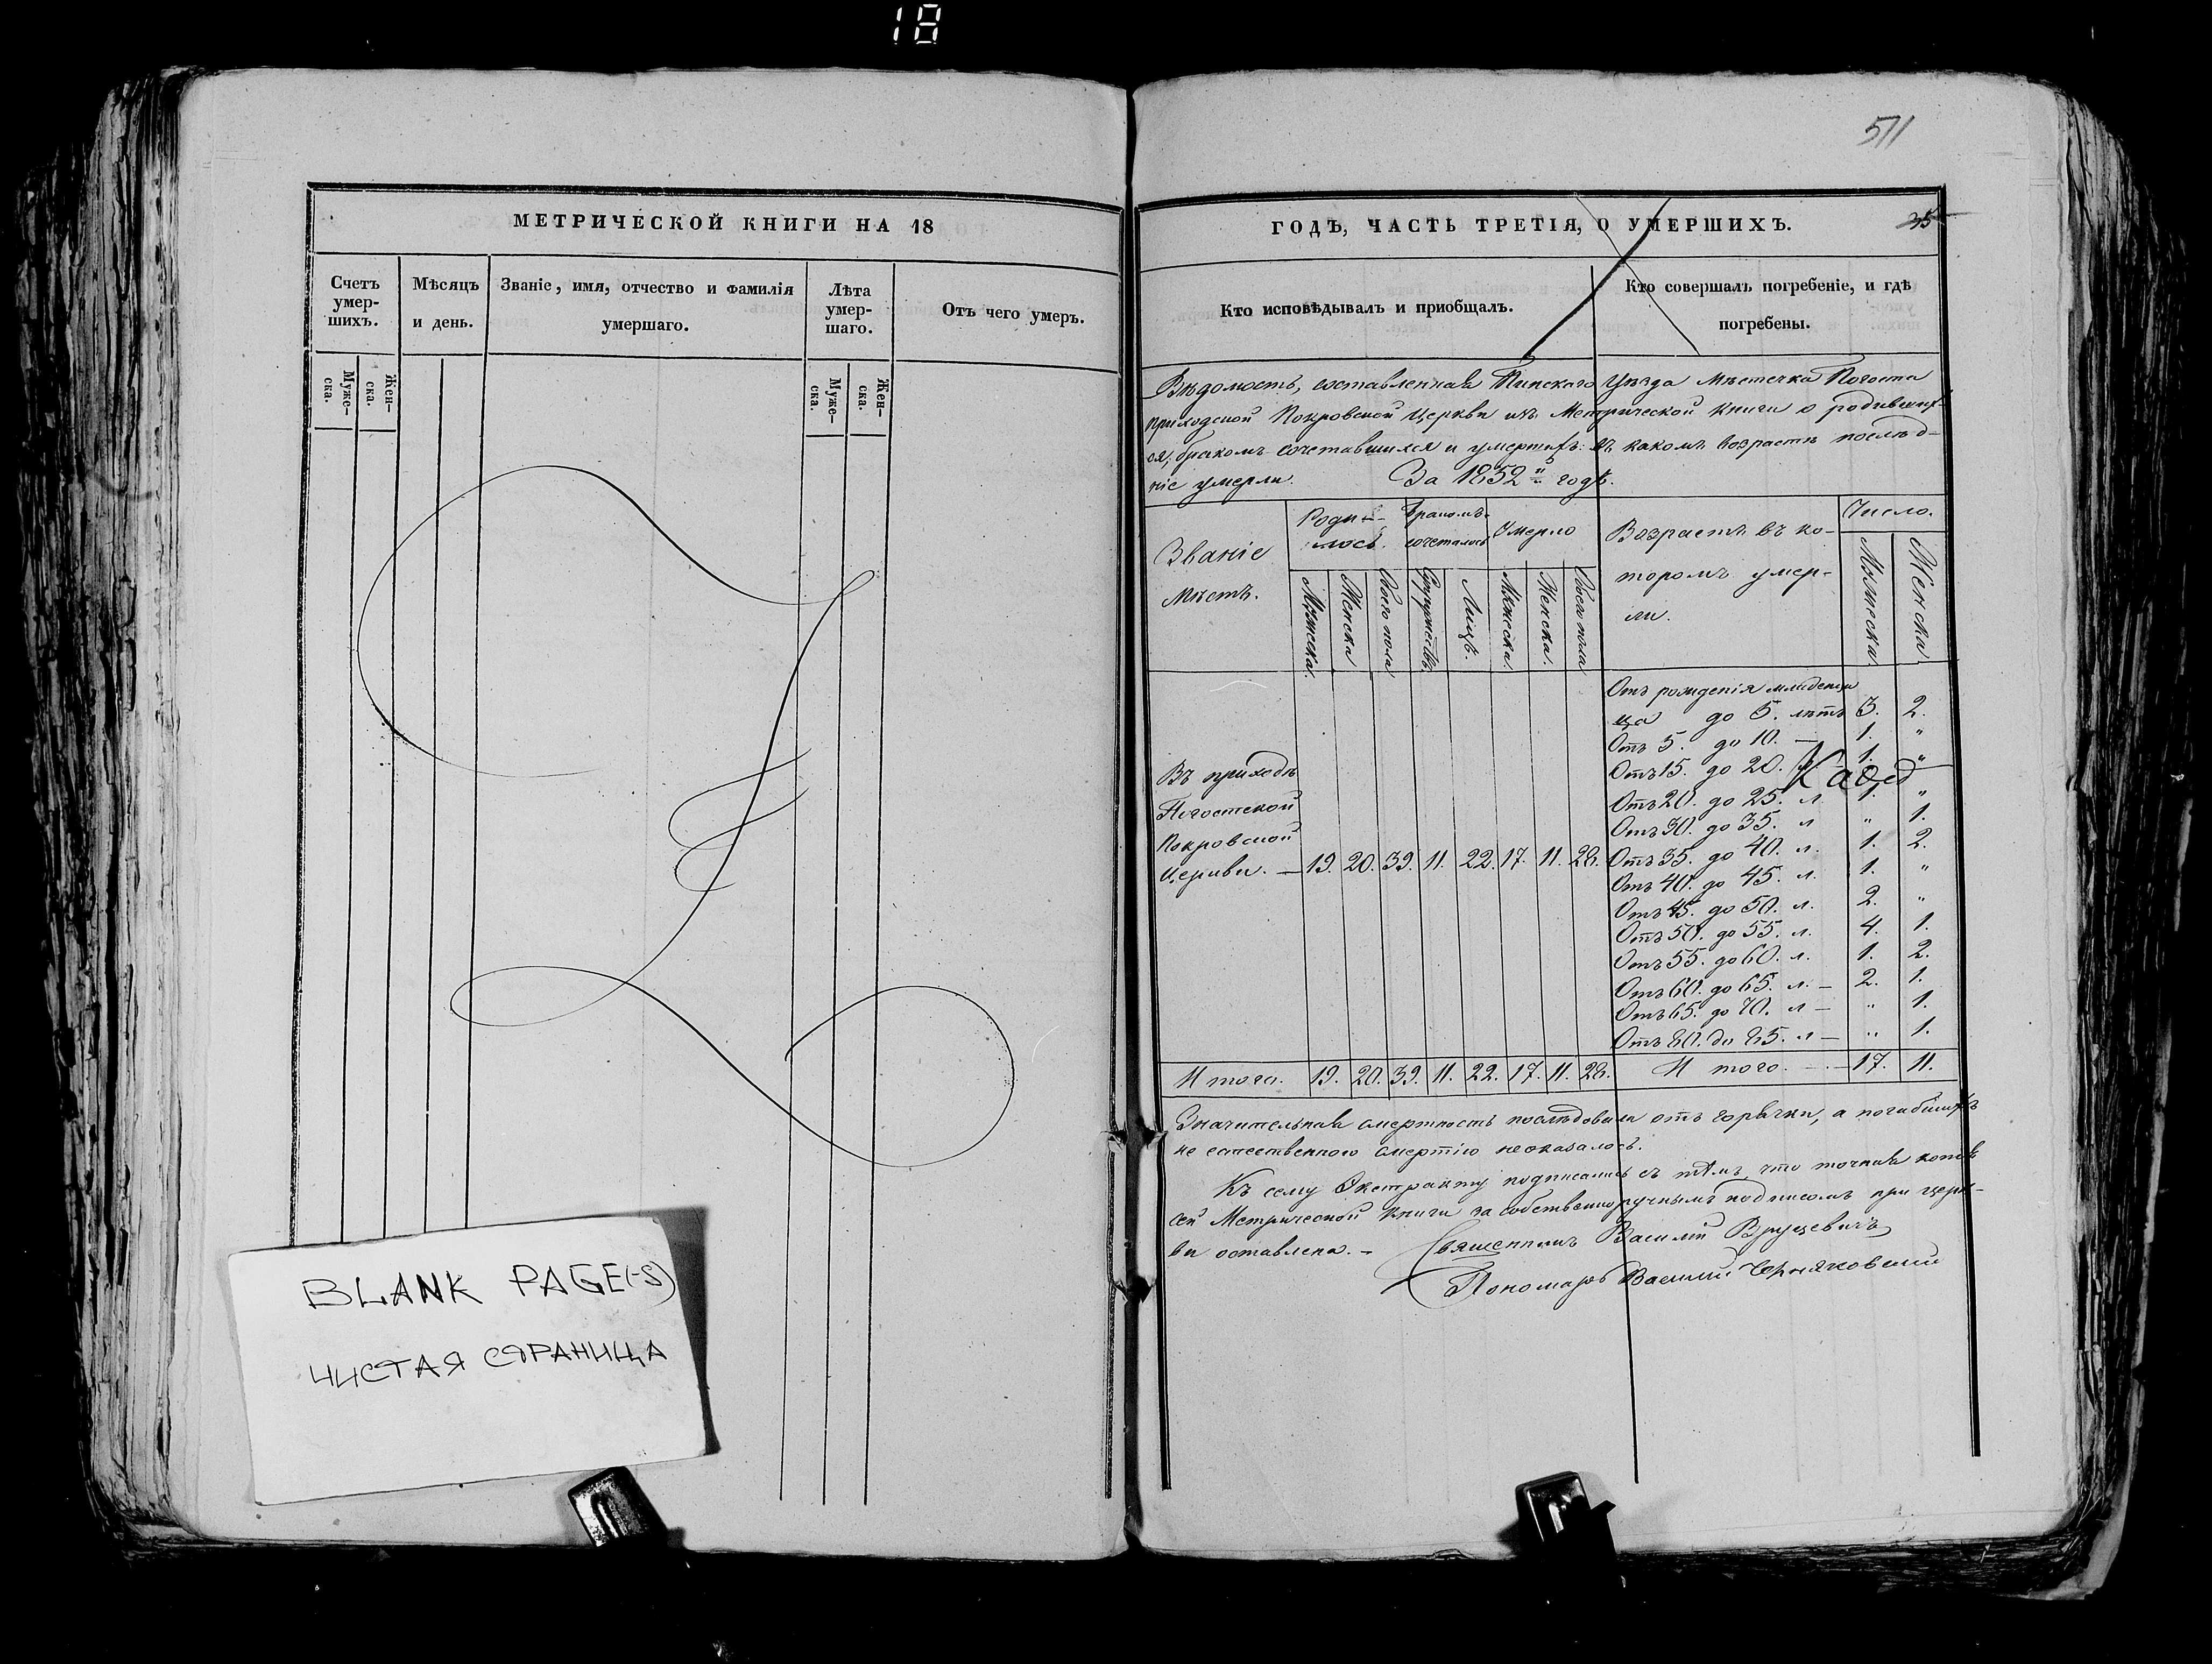 18
511
МЕТРИЧЕСКОЙ КНИГИ НА 18
Счетъ умер-шихъ.
Муже-ска.
Жен-ска.
Мѣсяцъ и день.
Званіе, имя, отчество и фамилія умершаго.
Лѣта умер-шаго.
Муже-ска.
Жен-ска.
Отъ чего умеръ.
BLANK PAGE(-S)
ЧИСТАЯ СТРАНИЦА
ГОДЪ, ЧАСТЬ ТРЕТІЯ, О УМЕРШИХЪ.
35
Кто исповѣдывалъ и приобщалъ.
Кто совершалъ погребеніе, и гдѣ погребены.
Вѣдомость, составленная Пинскаго Уѣзда Мѣстечка Погоста
приходской Покровской Церкви изъ Метрической книги о родивших-
ся, бракомъ сочетавшихся и умершихъ: въ какомъ возрастѣ послѣд-
ніе умерли. За 1852й годъ.
Званіе мѣстъ.
Роди-лось.
Бракомъ сочеталось
Умерло
Возрастъ въ ко-
торомъ умер-
ли.
Число.
Мужеска.
Женска
Обоего пола
Супружествъ.
Лицъ.
Мужеска.
Женска.
Обоего пола
Мужеска
Женска
Отъ рожденія младенца
до 5. лѣтъ 3. 2.
Отъ 5. до 10. — 1. "
Отъ 15. до 20. 1. "
Отъ 20. до 25. л 1. "
Отъ 30. до 35. л " 1.
Отъ 35. до 40. л. 1. 2.
Отъ 40. до 45. л. 1. "
Отъ 45. до 50. л. 2. "
Отъ 50. до 55. л. 4. 1.
Отъ 55. до 60. л. 1. 2.
Отъ 60. до 65. л. — 2. 1.
Отъ 65. до 70. л — " 1.
Отъ 80. до 85. л — " 1.
Въ приходѣ
Погостской
Покровской
Церкви. — 19. 20. 39. 11. 22. 17. 11. 28.
Итого. 19. 20. 39. 11. 22. 17. 11. 28.
Итого. — 17. 11.
Значительная смертность послѣдовала отъ горячки, а погибшихъ
не естественною смертію не оказалось.
Къ сему Экстракту подписались съ тѣмъ, что точная копія
сей Метрической Книги за собственноручнымъ подписомъ при церк-
ви оставлена. —
Священникъ Василій Вруцевичъ
Пономарь Василій Черняковскій